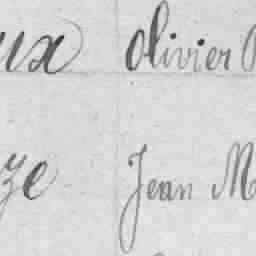 ux Olivier
ze Jean M